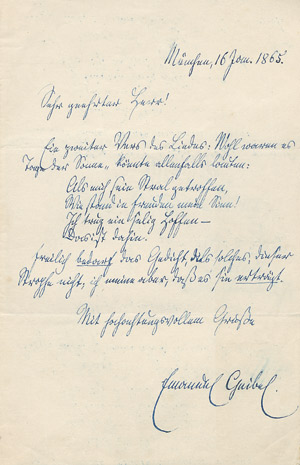 München, 16 Jan. 1865.
Sehr geehrter Herr!
Ein zweiter Vers des Liedes: Wohl waren es
Tage der Sonne" könnte allenfalls lauten:
Als mich sein Stral getroffen,
Wie stand in Freuden mein Sinn!
Ich trug ein selig Hoffen –
Das ist dahin.
Freilich bedarf das Gedicht, als solches, dieser
Strophe nicht, ich meine aber, daß es sie erträgt.
Mit hochachtungsvollem Gruße
Emanuel Geibel.